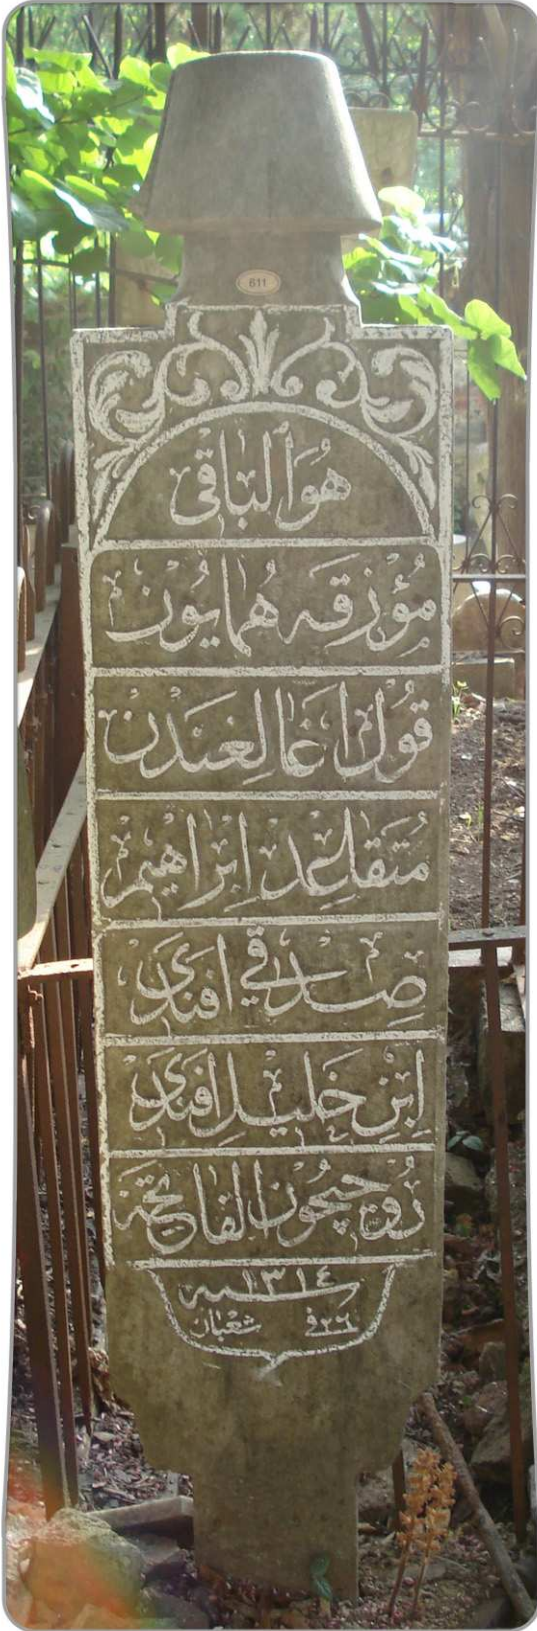 611
هُوَ الباقى
مؤزقه هُمايُون
قول اغالغندن
مُتقاعد ابراهيم
صدقى افندى
ابن خليل افندى
روحيچون الفاتحة
سنه ١٣١٤
فى ٢٦ شعبان